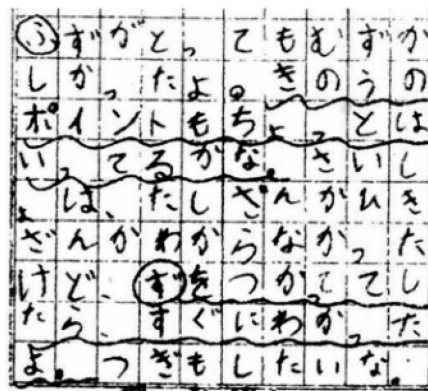 ふずがとってもむずか
しかったよ。きのうの
ポイントもちょっとは
いってるかな。さいし
ょは、たしざんかひき
ざんかわからなかった
けど、ずをつかってし
たら、すぐにわかった
よ。つぎもしたいな。